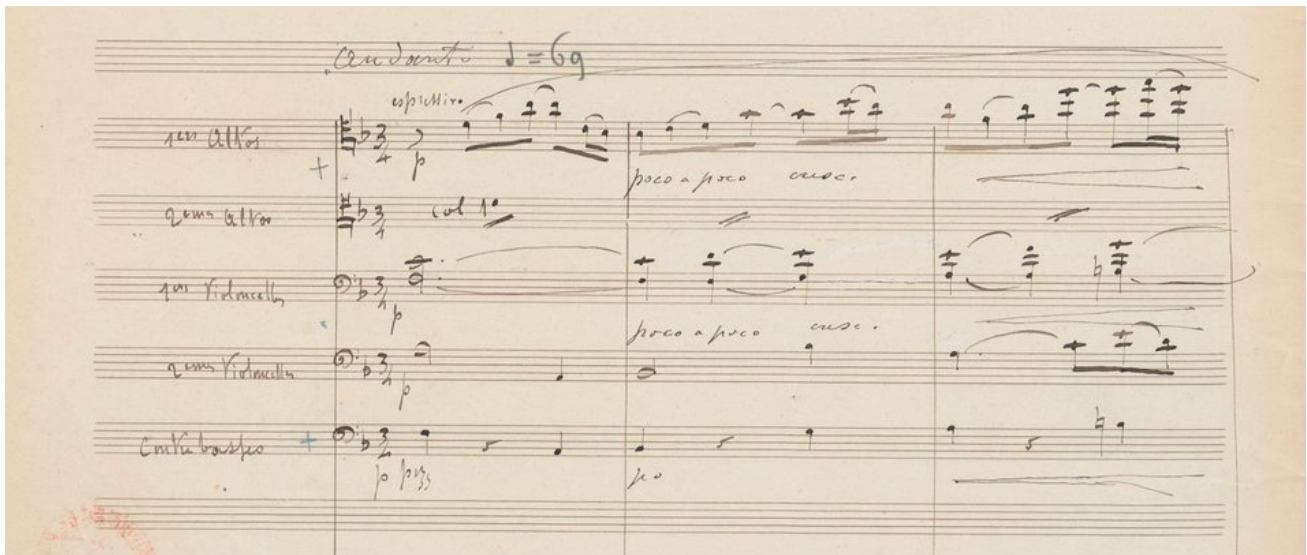 Andante ♩ = 69
espressivo
1ers Altos
3
4
p
poco a poco cresc.
2emes Altos
3
4
col 1o
1ers Violoncelles
3
4
p
poco a poco cresc.
2emes Violoncelles
3
4
p
Contrebasses
3
4
p pizz